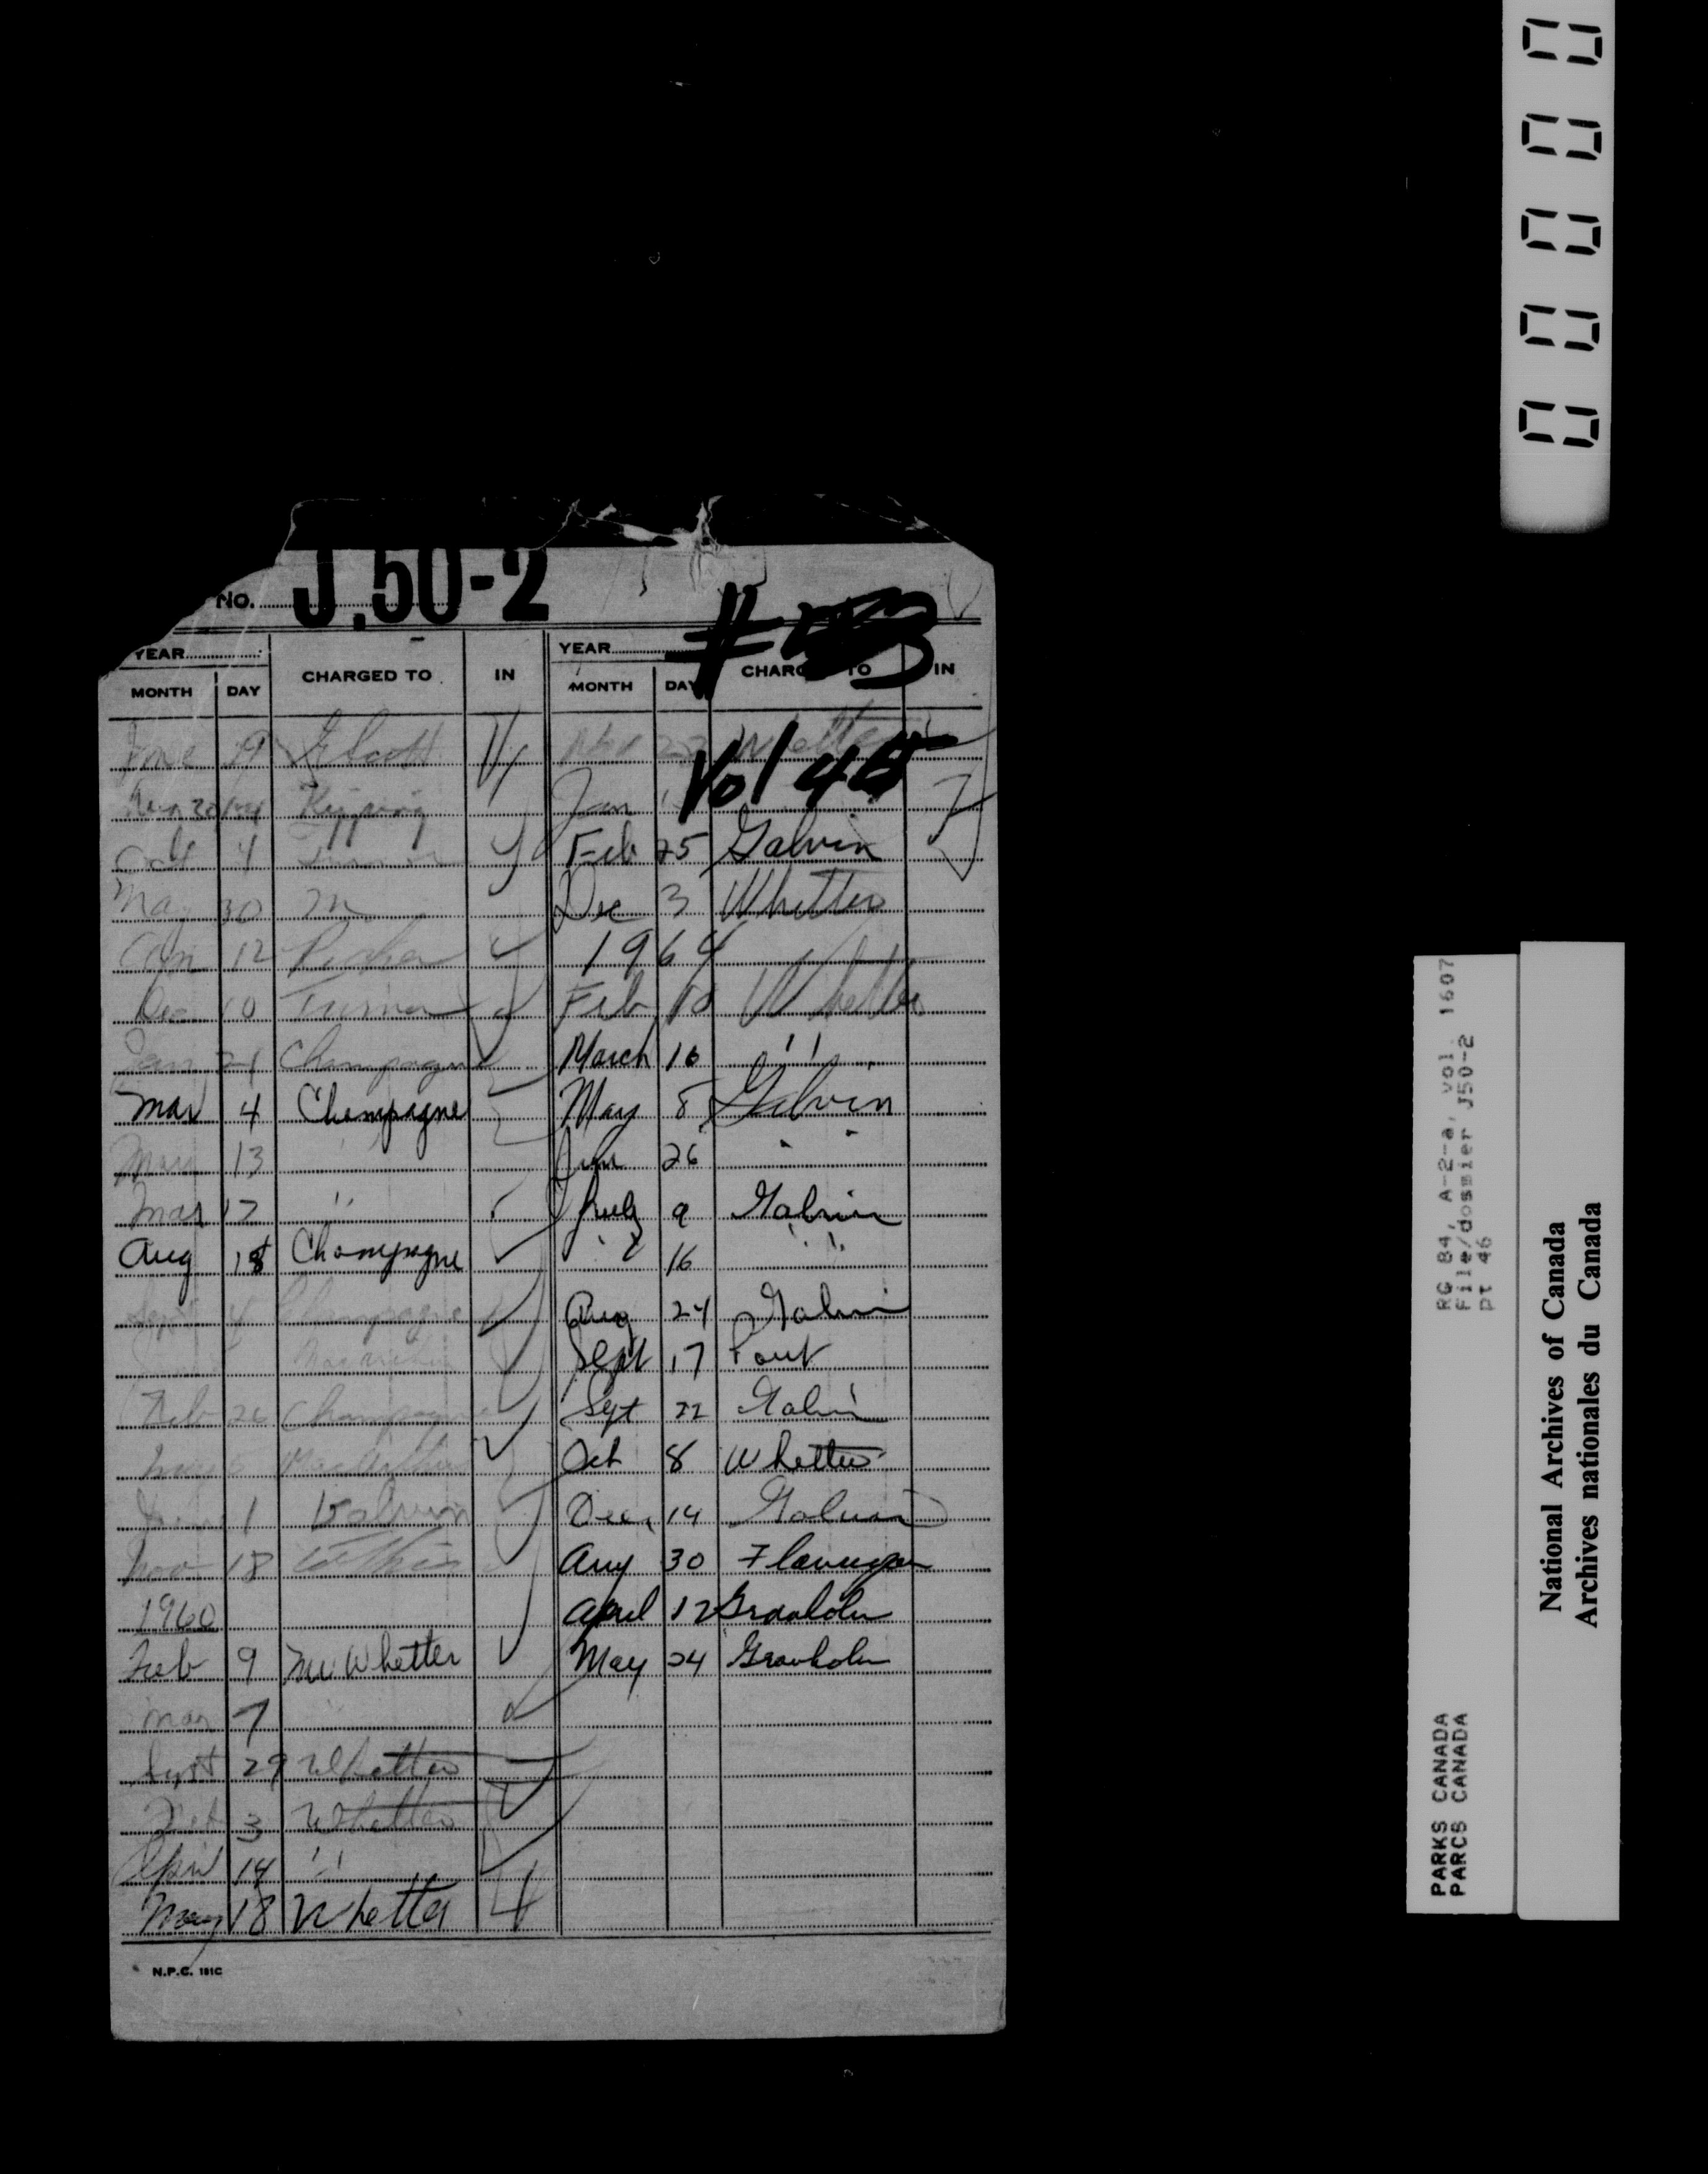 No. J.50-2
#
YEAR
MONTH DAY CHARGED TO IN
June 29 Scott
Kipping
Oct 4
May 30 M
Jan 12
Dec 10 Turner
Jan 21 Champagne
Mar 4 Champagne
Mar 13
Mar 17 "
Aug 18 Champagne
Sept 4 Champagne
MacArthur
Feb 26 Champagne
MacArthur
1 Galvin
Nov 18
1960
Feb 9 M Whetter
Mar 7
Sept 29 Whetter
Oct 3 Whetter
April 14 "
May 18 Whetter
N.P.C. 181C
YEAR
MONTH DAY CHARGED TO IN
Whetter
Vol 46
Jan
Feb 25 Galvin
Dec 3 Whetter
1964
Feb 10 Whetter
March 16 "
May 8 Galvin
June 26 "
July 9 Galvin
" 16 "
Aug 24 Galvin
Sept 17 Pout
Sept 22 Galvin
Oct 8 Whetter
Dec. 14 Galvin
Aug 30 Flanigan
April 12 Granholm
May 24 Granholm
00000
RG 84, A-2-a, vol. 1607
File/dossier J50-2
pt 46
PARKS CANADA
PARCS CANADA
National Archives of Canada
Archives nationales du Canada